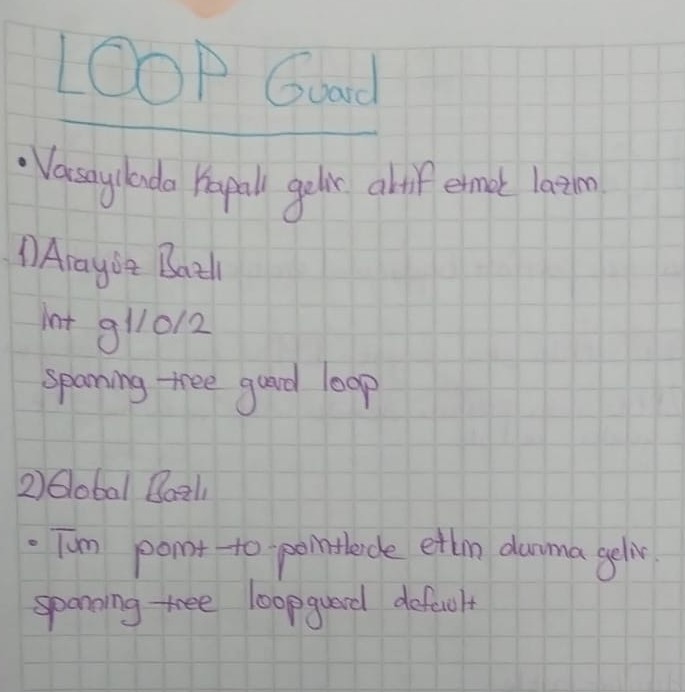 LOOP Guard
• Varsayılanda Kapalı gelir. aktif etmek lazım.
1) Arayüz Bazlı
int g1/0/2
spanning-tree guard loop
2) Global Bazlı
• Tüm point-to-pointlerde etkin duruma gelir.
spanning-tree loopguard default